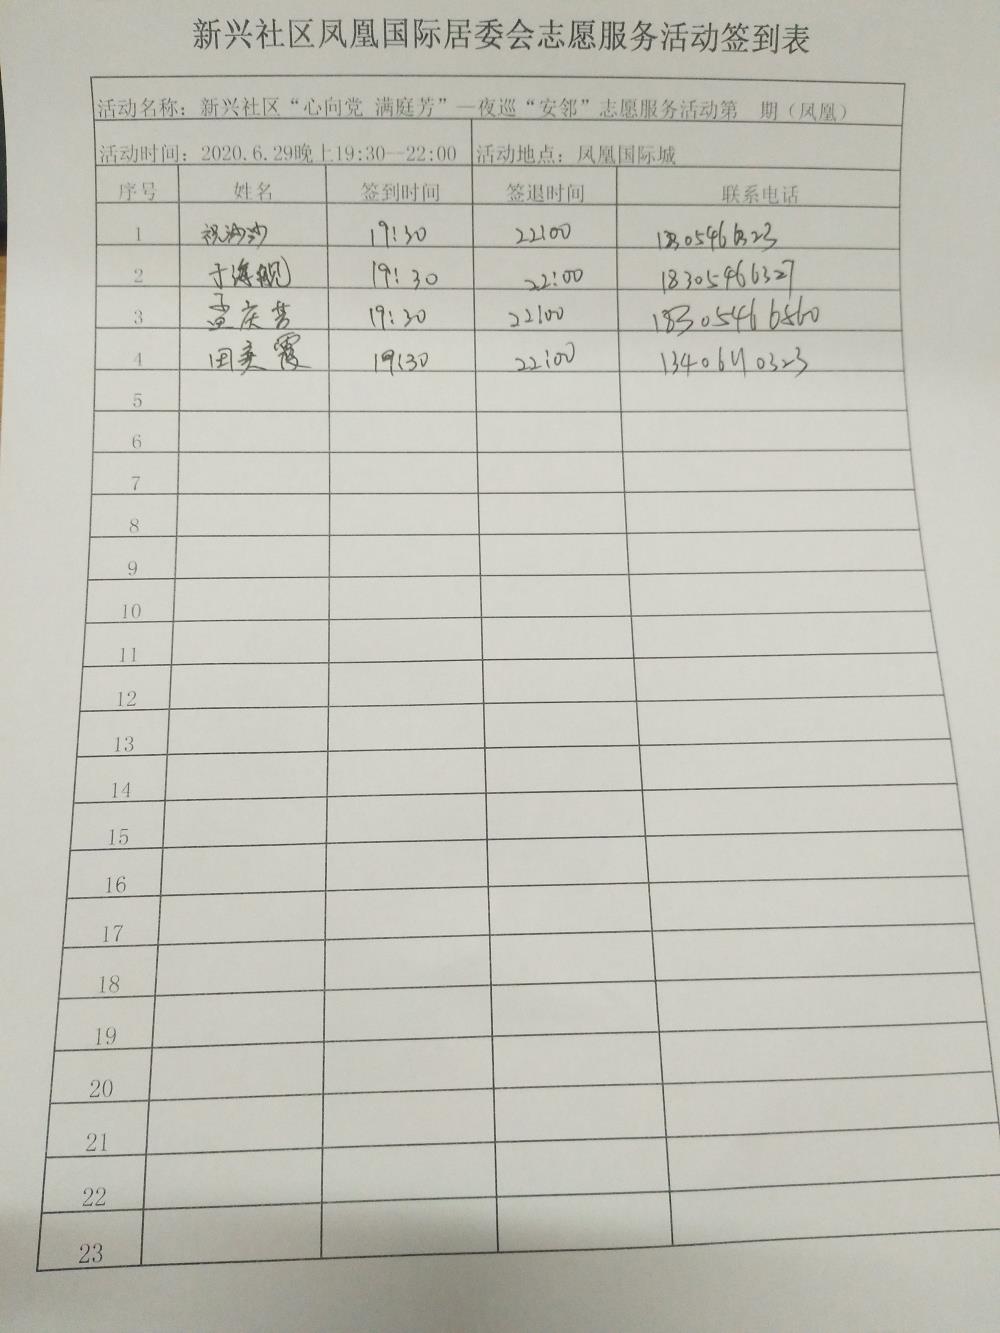 新兴社区凤凰国际居委会志愿服务活动签到表
活动名称：新兴社区“心向党 满庭芳”—夜巡“安邻”志愿服务活动第 期（凤凰）
活动时间：2020.6.29晚上19:30—22:00 活动地点：凤凰国际城
序号 姓名 签到时间 签退时间 联系电话
1 祝沙沙 19:30 22:00
2 于海舰 19:30 22:00 18305466327
3 孟庆芳 19:30 22:00 18305466560
4 田奕霞 19:30 22:00
5
6
7
8
9
10
11
12
13
14
15
16
17
18
19
20
21
22
23